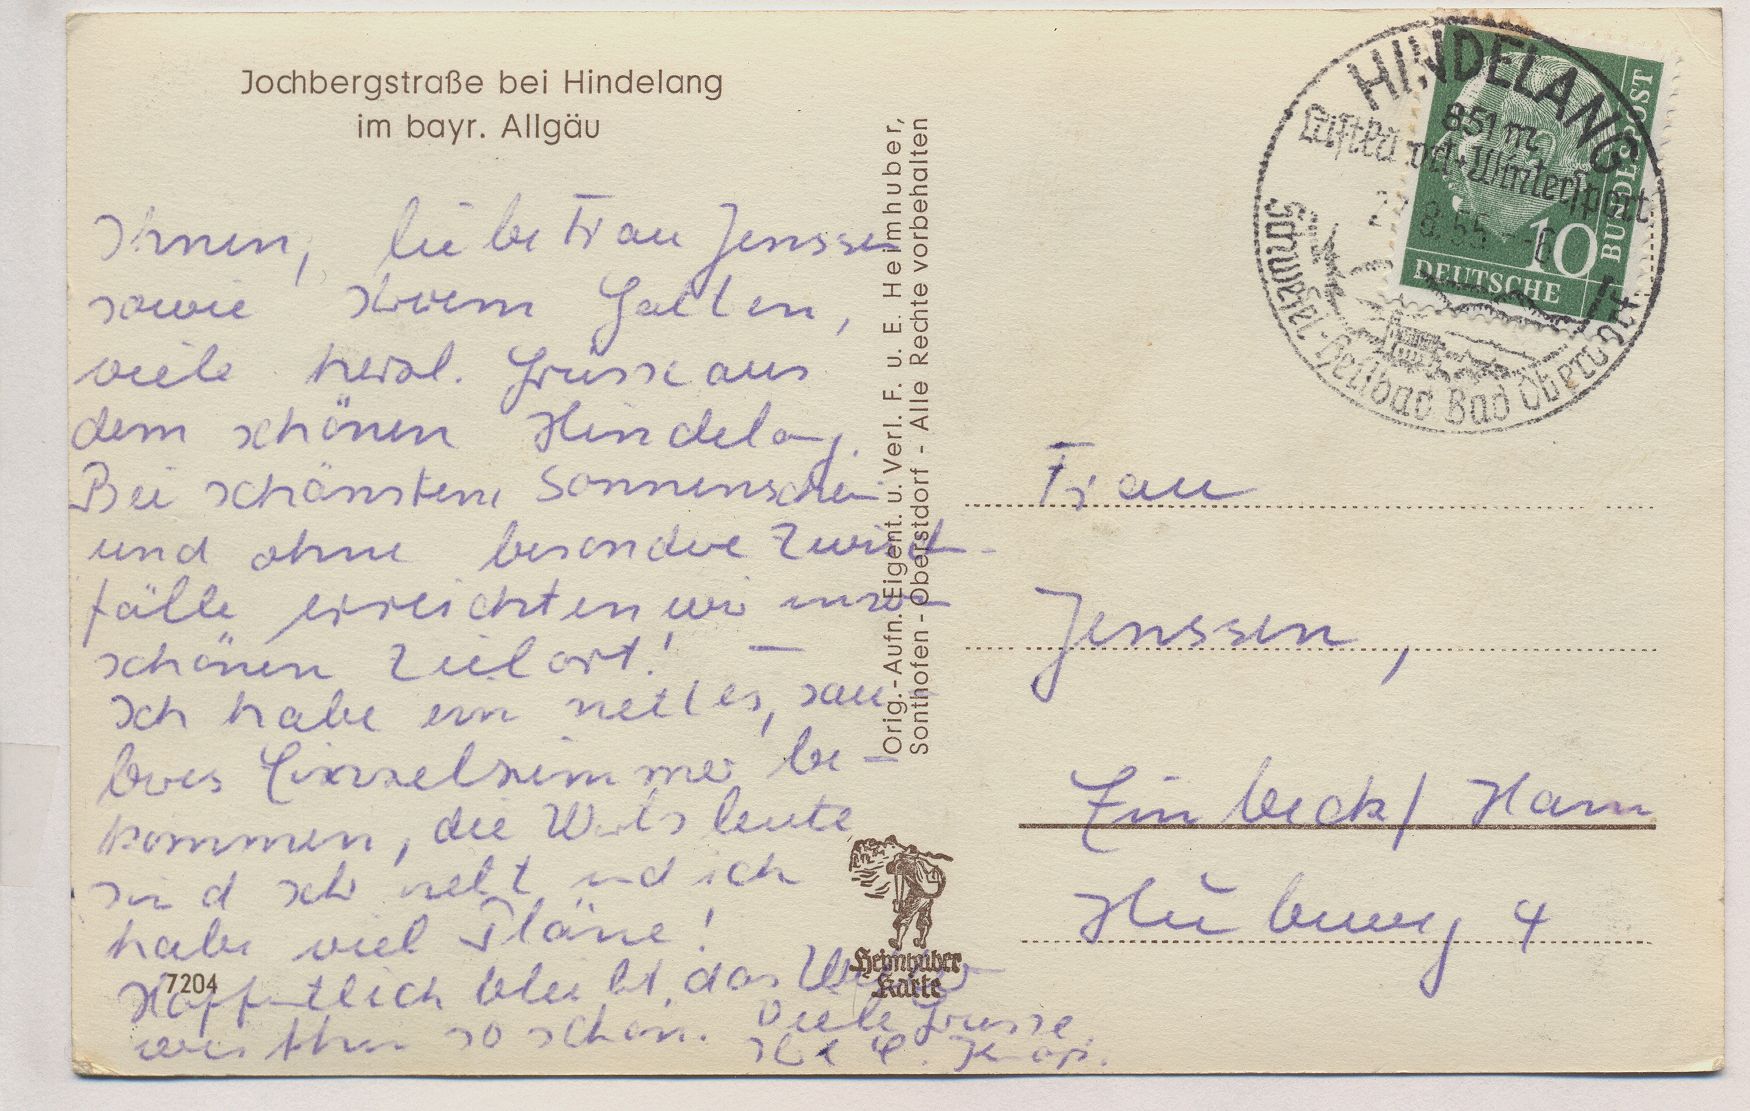 Jochbergstraße bei Hindelang
im bayr. Allgäu
Ihnen, liebe Frau Jenssen
sowie Ihrem Gatten,
viele herzl. Grüsse aus
dem schönen Hindelang.
Bei schönstem Sonnenschein
und ohne besondere Zwisch-
fälle erreichten wir unsern
schönen Zielort! —
Ich habe ein nettes, sau-
beres Einzelzimmer be-
kommen, die Wirtsleute
sind sehr nett und ich
habe viel Pläne!
Hoffentlich bleibt das Wetter
weiterhin so schön. Viele Grüsse
7204
Orig.-Aufn. Eigent. u. Verl. F. u. E. Heimhuber,
Sonthofen - Oberstdorf - Alle Rechte vorbehalten
Heimhuber
Karte
HINDELANG
851 m
Luftku u. Wintersport
8.55 -6
Schwefel-Heilbad Bad Oberdorf
10
DEUTSCHE
BUNDESPOST
Frau
Jenssen,
Einbeck / Hann
Hubeweg 4